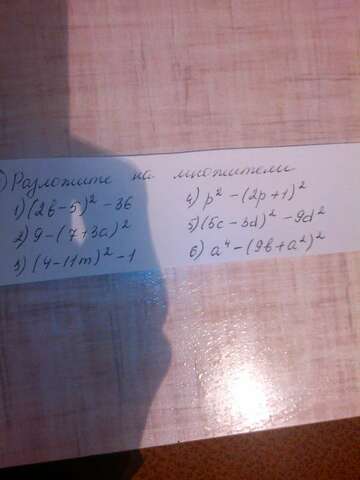 ) Разложите на множители
1) (2в-5)² - 36
2) 9 - (7+3а)²
3) (4-11m)² - 1
4) p² - (2p+1)²
5) (5c-3d)² - 9d²
6) a⁴ - (9в+a²)²